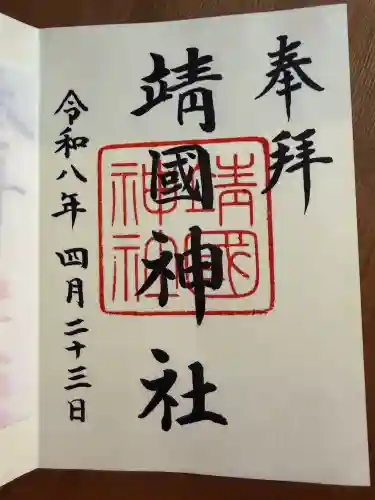 奉拝
靖國神社
靖国
神社
令和八年 四月二十三日